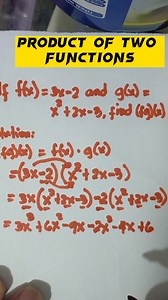 PRODUCT OF TWO
FUNCTIONS
If f(x) = 3x-2 and g(x) =
x² + 2x - 3, find (fg)(x)
lution:
fg)(x) = f(x) · g(x)
= (3x-2)(x² + 2x - 3)
= 3x(x² + 2x - 3) - 2(x² + 2x - 3)
= 3x³ + 6x² - 9x - 2x² - 4x + 6